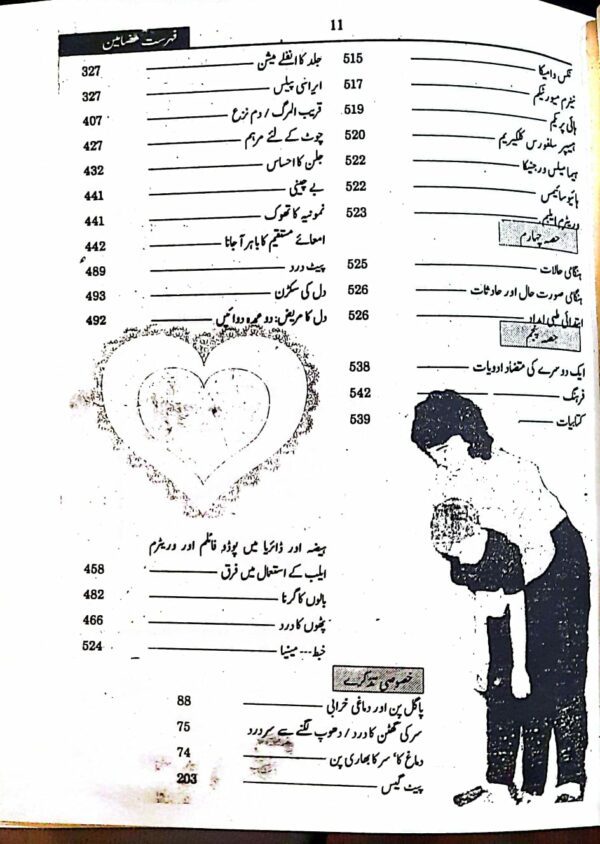 11
فہرست مضامین
نکس وامیکا 515
نیٹرم میورٹیکم 517
ہائی پریکم 519
ہیپر سلفورس کلکیریم 520
ہیما میلس ورجنیکا 522
ہائیوسائمس 522
وریٹرم ایلبم 523
حصہ چہارم
ہنگامی حالات 525
ہنگامی صورت حال اور حادثات 526
ابتدائی طبی امداد 526
حصہ پنجم
ایک دوسرے کی متضاد ادویات 538
فرہنگ 542
کتابیات 539
جلد کا انفلے میشن 327
ایرانی پیلس 327
قریب المرگ / دم نزع 407
چوٹ کے لئے مرہم 427
جلن کا احساس 432
بے چینی 441
نمونیہ کا تھوک 441
امعائے مستقیم کا باہر آ جانا 442
پیٹ درد 489
دل کی سکڑن 493
دل کا مریض: دو عمدہ دوائیں 492
ہیضہ اور ڈائریا میں پوڈو فائلم اور وریٹرم
ایلب کے استعمال میں فرق 458
بالوں کا گرنا 482
پٹھوں کا درد 466
خبط --- مینیا 524
خصوصی تذکرے
پاگل پن اور دماغی خرابی 88
سر کی گھٹن کا درد / دھوپ لگنے سے سر درد 75
دماغ کا' سر کا بھاری پن 74
پیٹ گیس 203